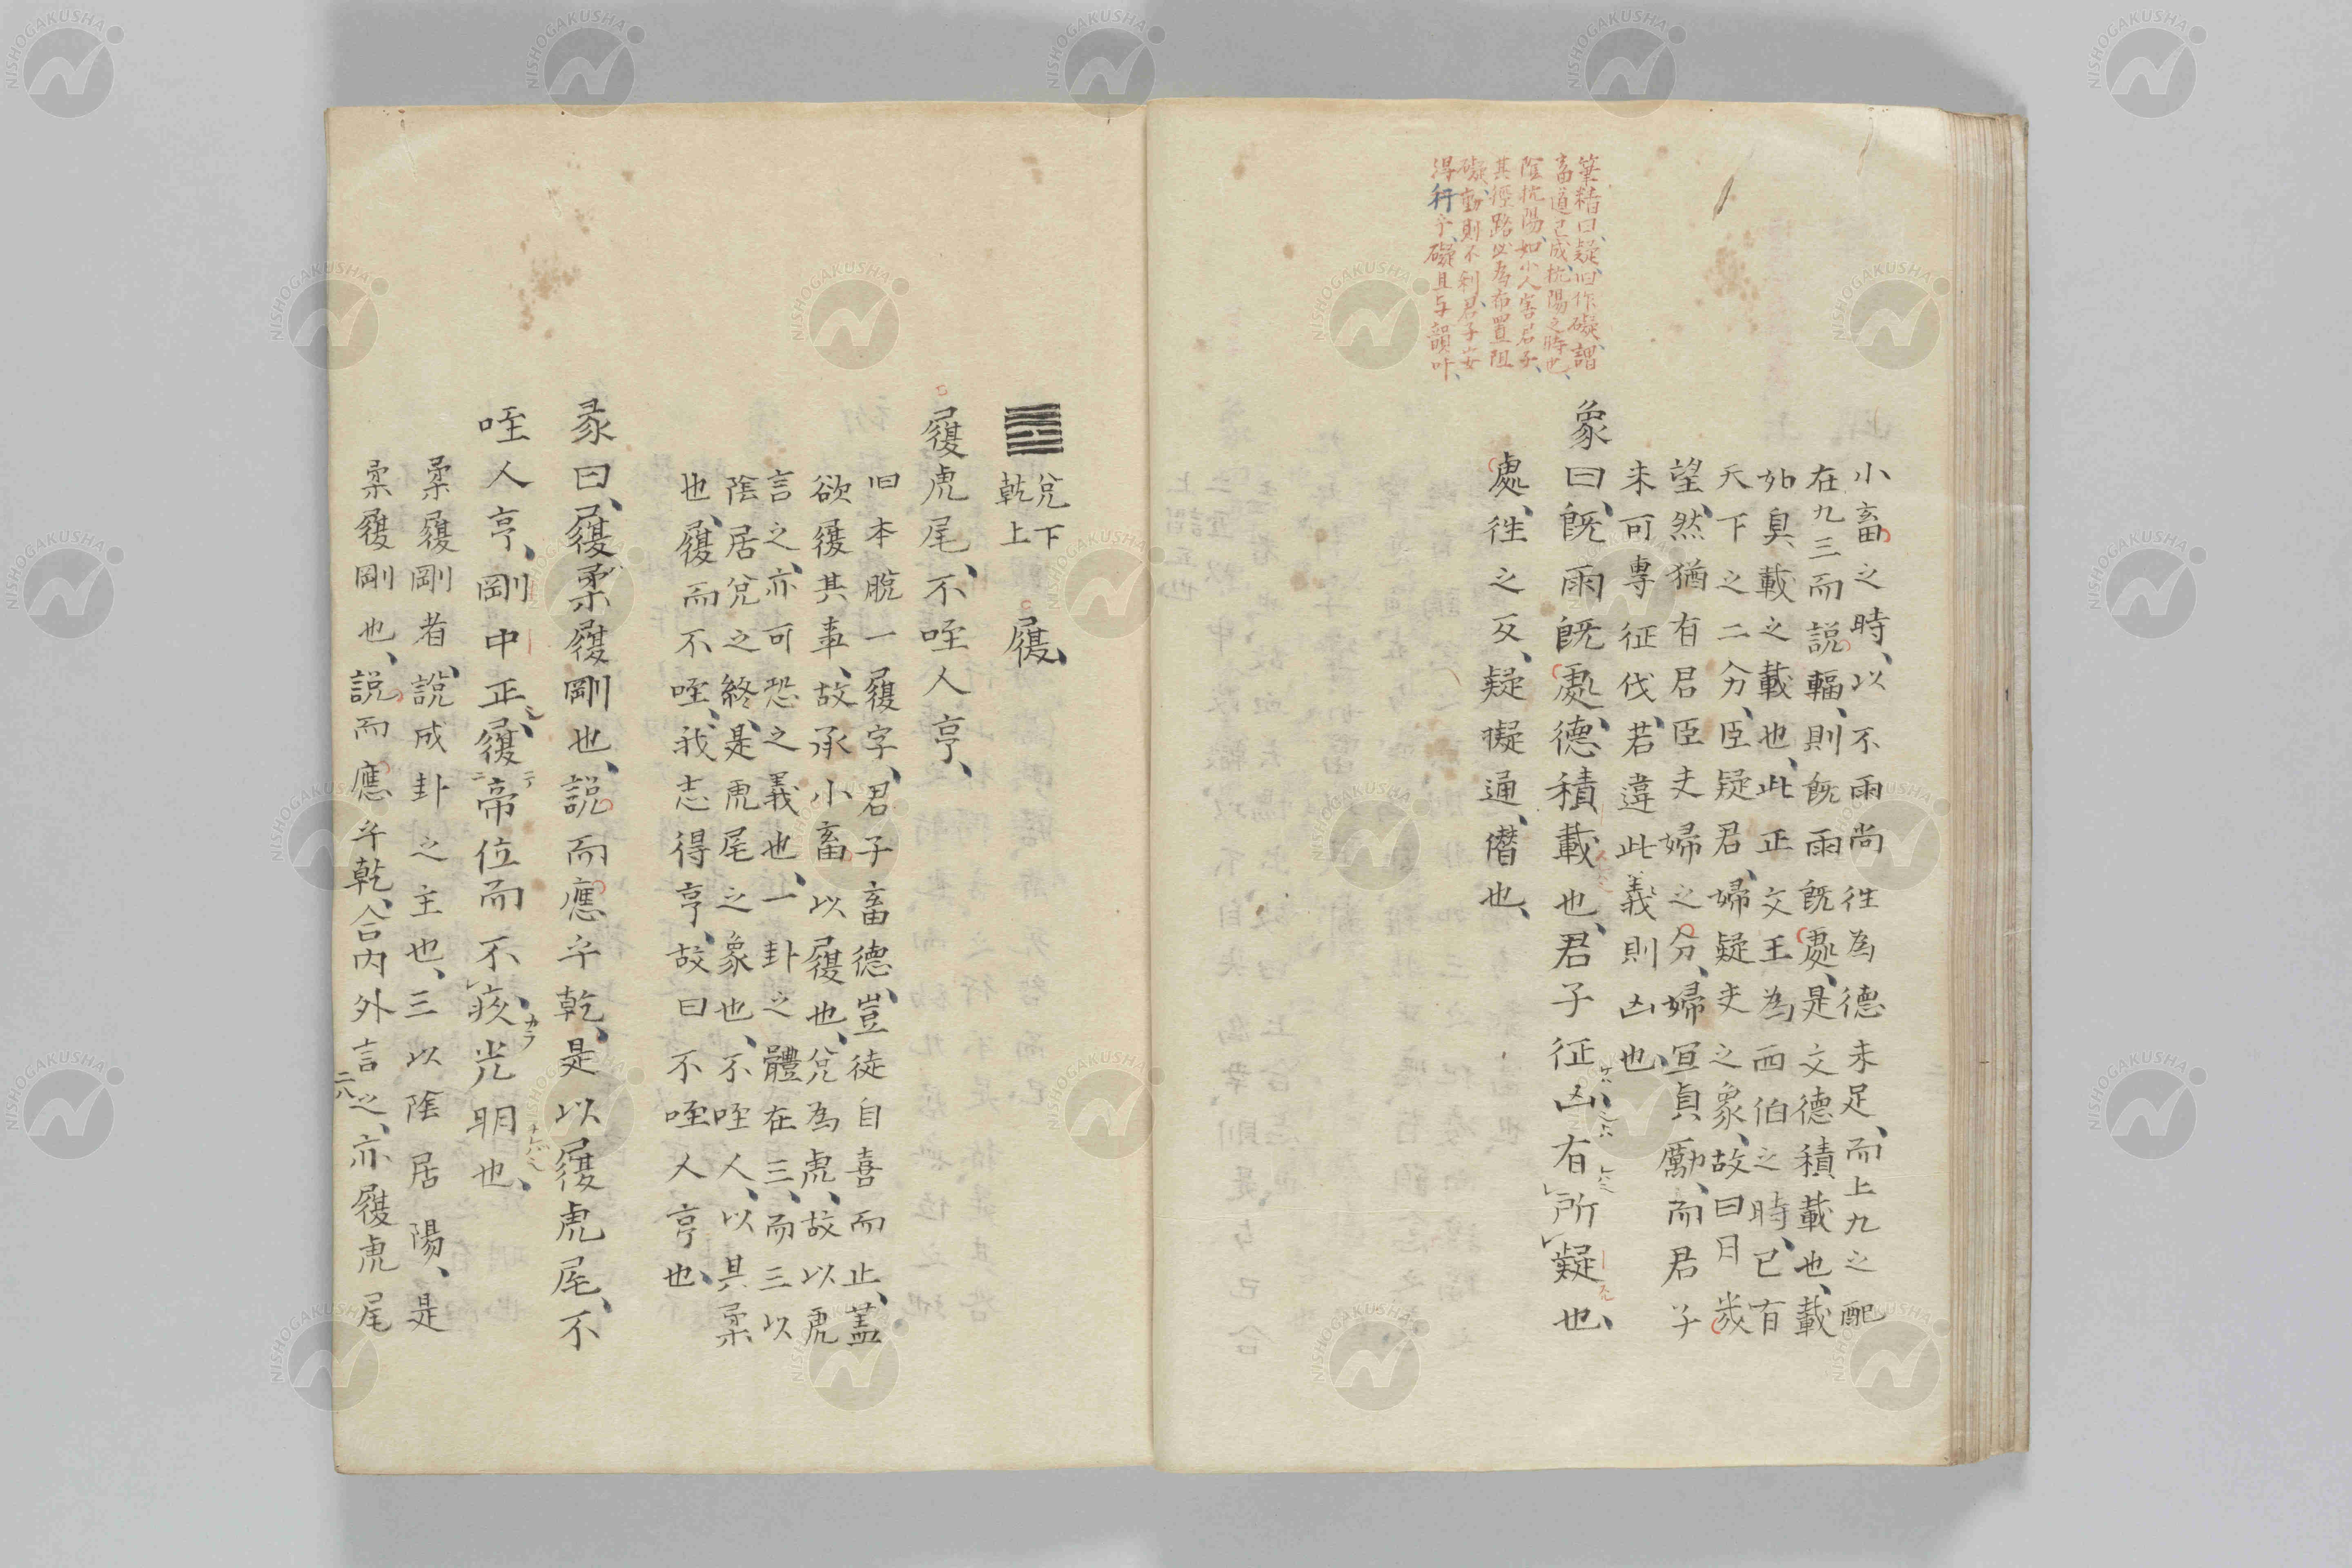 筆精曰、疑旧作礙、謂
畜道已成、抗陽之時也、
陰抗陽、如小人害君子、
其徑路必為布置阻
礙、動則不利、君子安
得行乎、礙且与韻叶、
小畜之時、以不雨尚徃為德未足、而上九之配
在九三而説輻、則既雨既處、是文德積載也、載
如臭載之載也、此正文王為西伯之時、已有
天下之二分、臣疑君、婦疑夫之象、故曰月㡬
望、然猶有君臣夫婦之分、婦宜貞厲、而君子
未可專征伐、若違此義則凶也、
象曰、既雨既處、德積載也、君子征凶有所疑也、
處、徃之反、疑擬通、僭也、
兌下
乾上
履、
履虎尾、不咥人亨、
旧本脫一履字、君子畜德、豈徒自喜而止、蓋
欲履其事、故承小畜以履也、兌為虎、故以虎
言之、亦可恐之義也、一卦之體在三、而三以
陰居兌之終、是虎尾之象也、不咥人、以其柔
也、履而不咥、我志得亨、故曰不咥人亨也、
彖曰、履柔履剛也、説而應乎乾、是以履虎尾、不
咥人亨、剛中正、履帝位而不疚、光明也、
柔履剛者、説成卦之主也、三以陰居陽、是
柔履剛也、説而應乎乾、合内外言之、亦履虎尾
二八
NISHOGAKUSHA